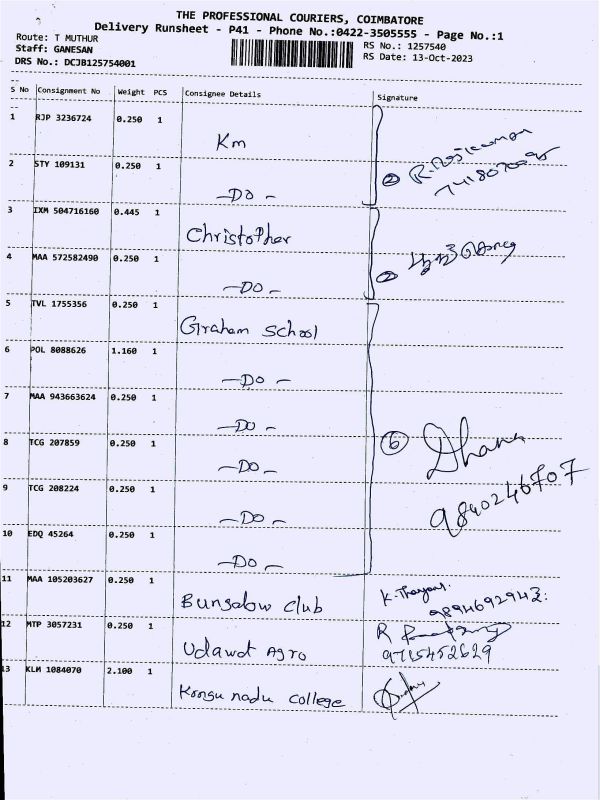 THE PROFESSIONAL COURIERS, COIMBATORE
Delivery Runsheet - P41 - Phone No.:0422-3505555 - Page No.:1
Route: T MUTHUR
Staff: GANESAN
DRS No.: DCJB125754001
RS No.: 1257540
RS Date: 13-Oct-2023
S No Consignment No Weight PCS Consignee Details Signature
1 RJP 3236724 0.250 1 Km
2 STY 109131 0.250 1 -DO-
② R.
3 IXM 504716160 0.445 1 Christopher
4 MAA 572582490 0.250 1 -DO-
②
5 TVL 1755356 0.250 1 Graham School
6 POL 8088626 1.160 1 -DO-
7 MAA 943663624 0.250 1 -DO-
8 TCG 207859 0.250 1 -DO-
⑥ Dhana
9840246707
9 TCG 208224 0.250 1 -DO-
10 EDQ 45264 0.250 1 -DO-
11 MAA 105203627 0.250 1 Bungalow club
9894692942
12 MTP 3057231 0.250 1 Udawat Agro
R
9715452629
13 KLM 1084070 2.100 1 Kongu nadu college